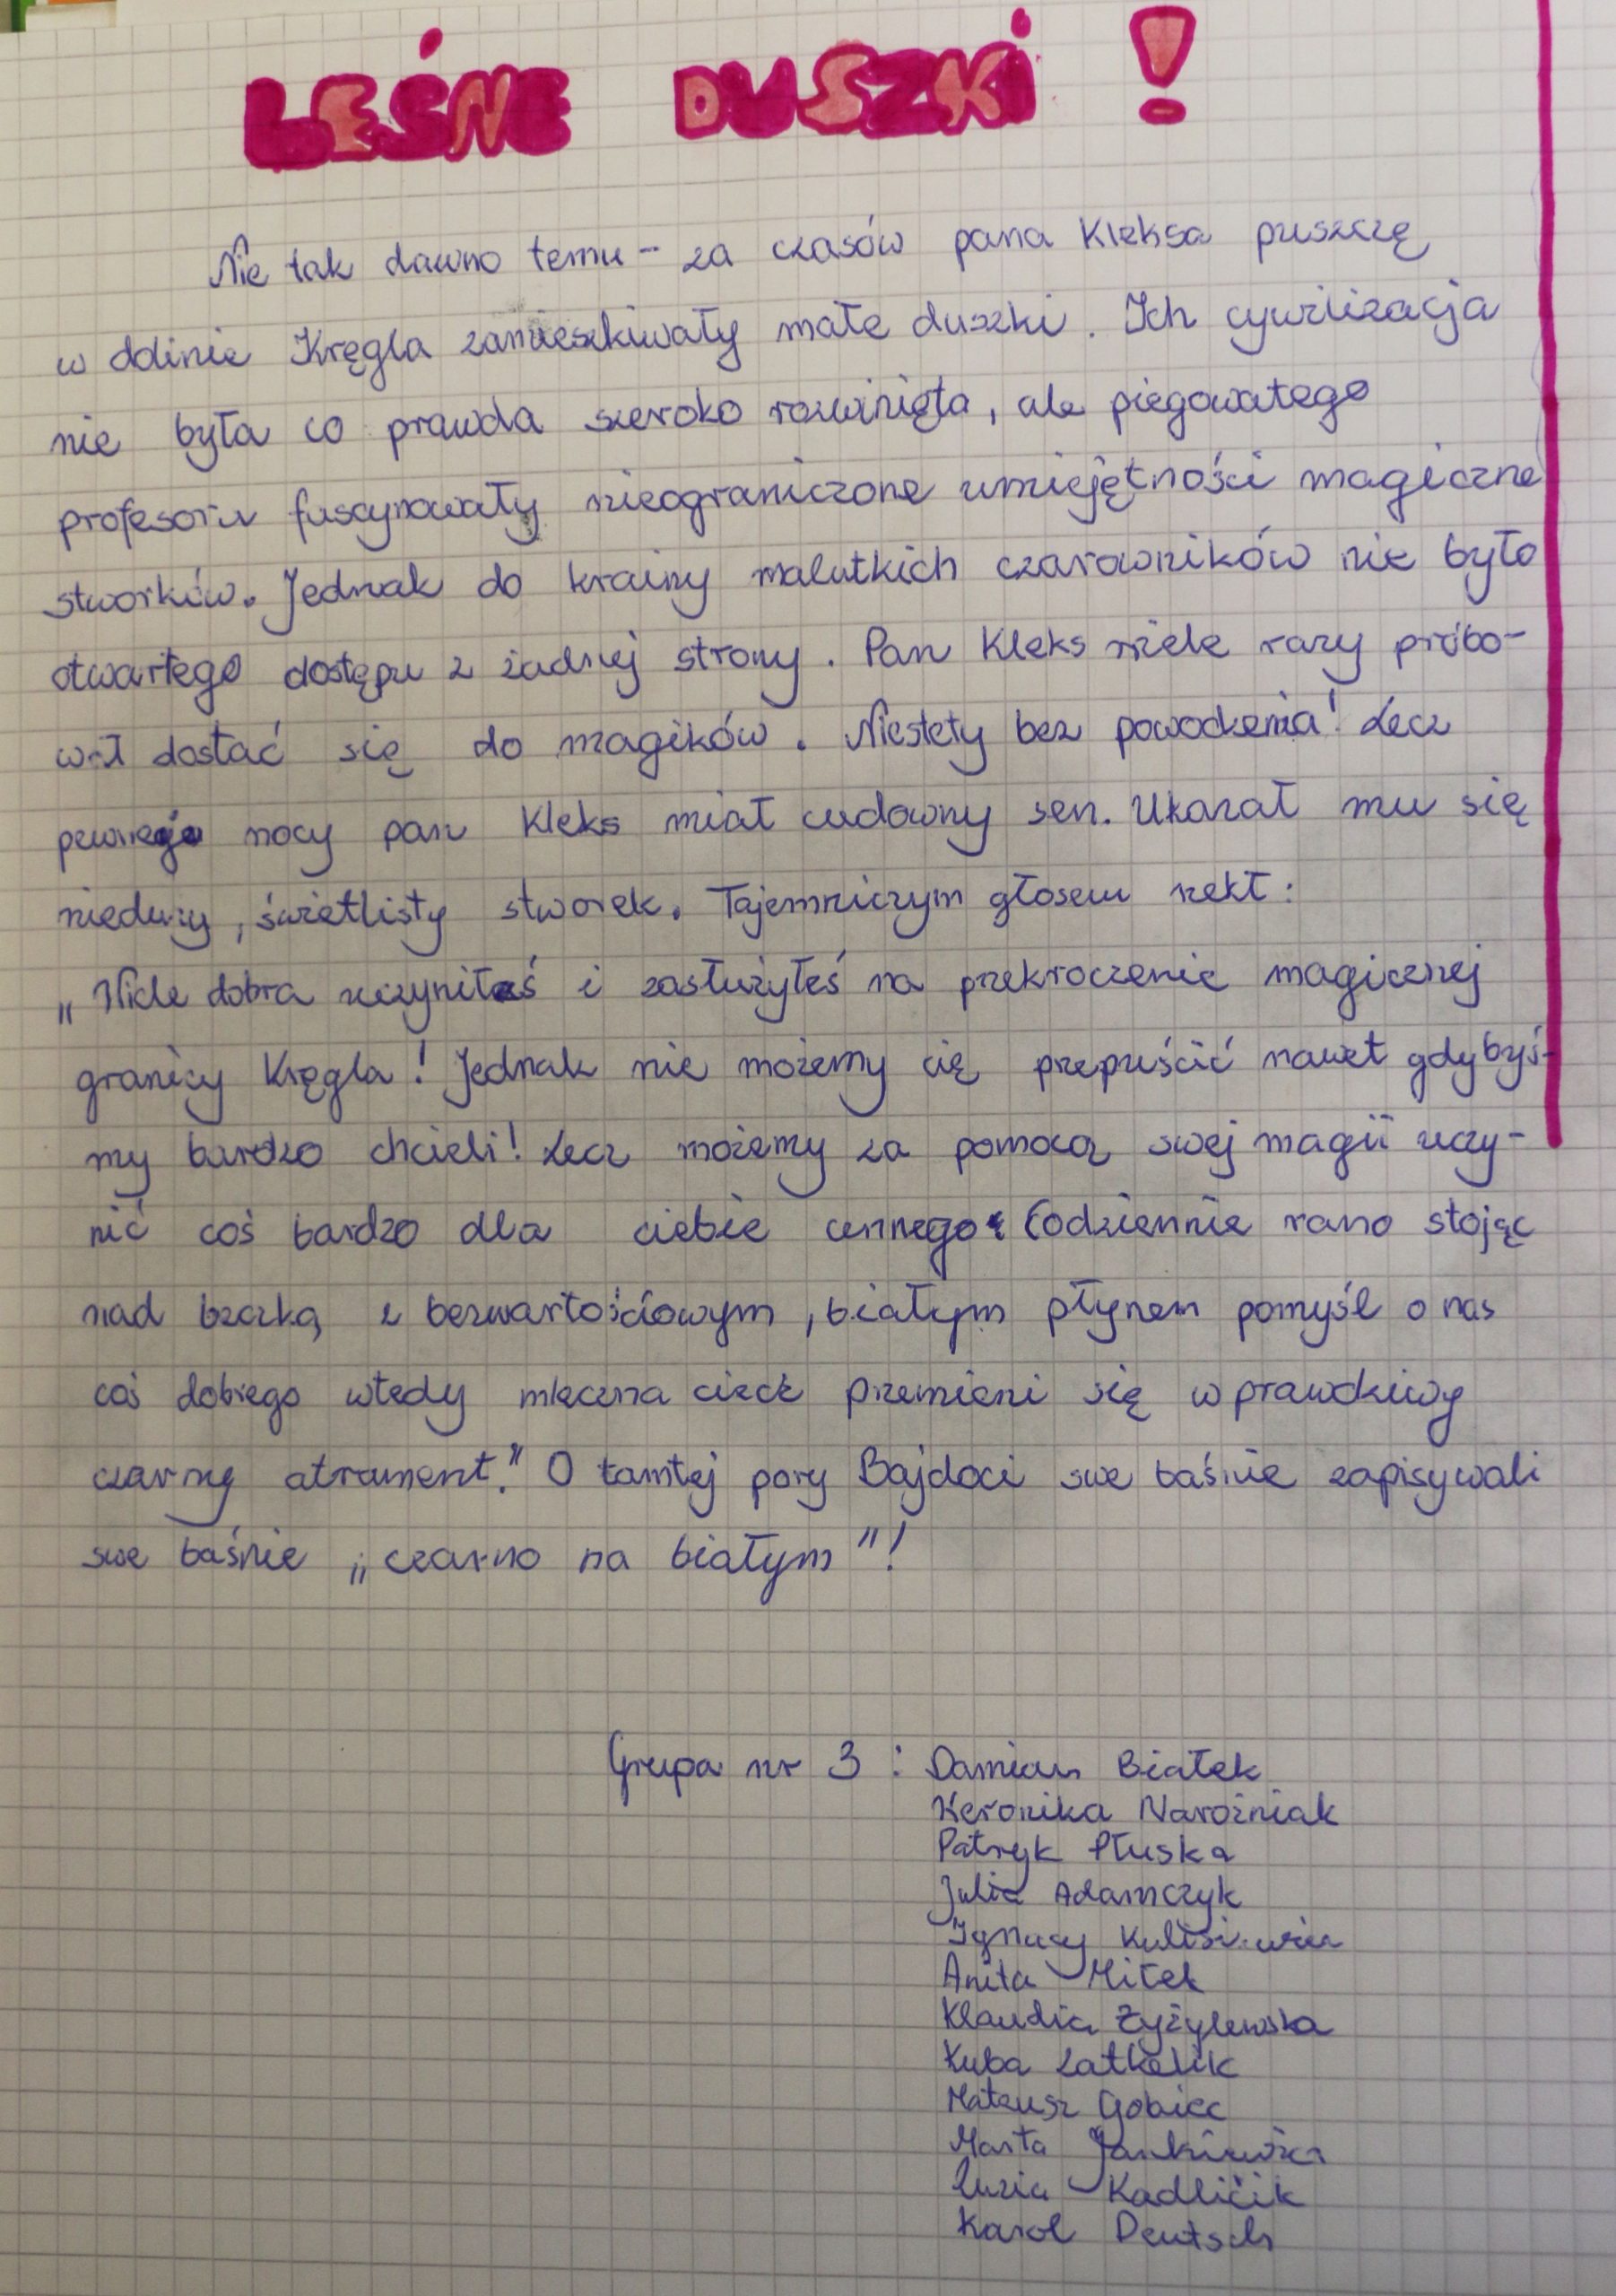 LEŚNE DUSZKI !
Nie tak dawno temu - za czasów pana Kleksa puszczę
w dolinie Kręgla zamieszkiwały małe duszki. Ich cywilizacja
nie była co prawda szeroko rozwinięta, ale piegowatego
profesora fascynowały nieograniczone umiejętności magiczne
stworków. Jednak do krainy malutkich czarowników nie było
otwartego dostępu z żadnej strony. Pan Kleks wiele razy próbo-
wał dostać się do magików. Niestety bez powodzenia! Lecz
pewnej nocy pan Kleks miał cudowny sen. Ukazał mu się
nieduży, świetlisty stworek. Tajemniczym głosem rzekł:
„Wiele dobra uczyniłeś i zasłużyłeś na przekroczenie magicznej
granicy Kręgla! Jednak nie możemy cię przepuścić nawet gdybyś-
my bardzo chcieli! Lecz możemy za pomocą swej magii uczy-
nić coś bardzo dla ciebie cennego. Codziennie rano stojąc
nad beczką z bezwartościowym, białym płynem pomyśl o nas
coś dobrego wtedy mleczna ciecz przemieni się w prawdziwy
czarny atrament." O tamtej pory Bajdoci swe baśnie zapisywali
swe baśnie „czarno na białym"!
Grupa nr 3 : Damian Białek
Weronika Narożniak
Patryk Płuska
Julia Adamczyk
Ignacy
Anita Miłek
Klaudia Żyżylewska
Kuba
Mateusz Gobiec
Marta Jankiewicz
Zuzia Kadlićik
Karol Deutsch